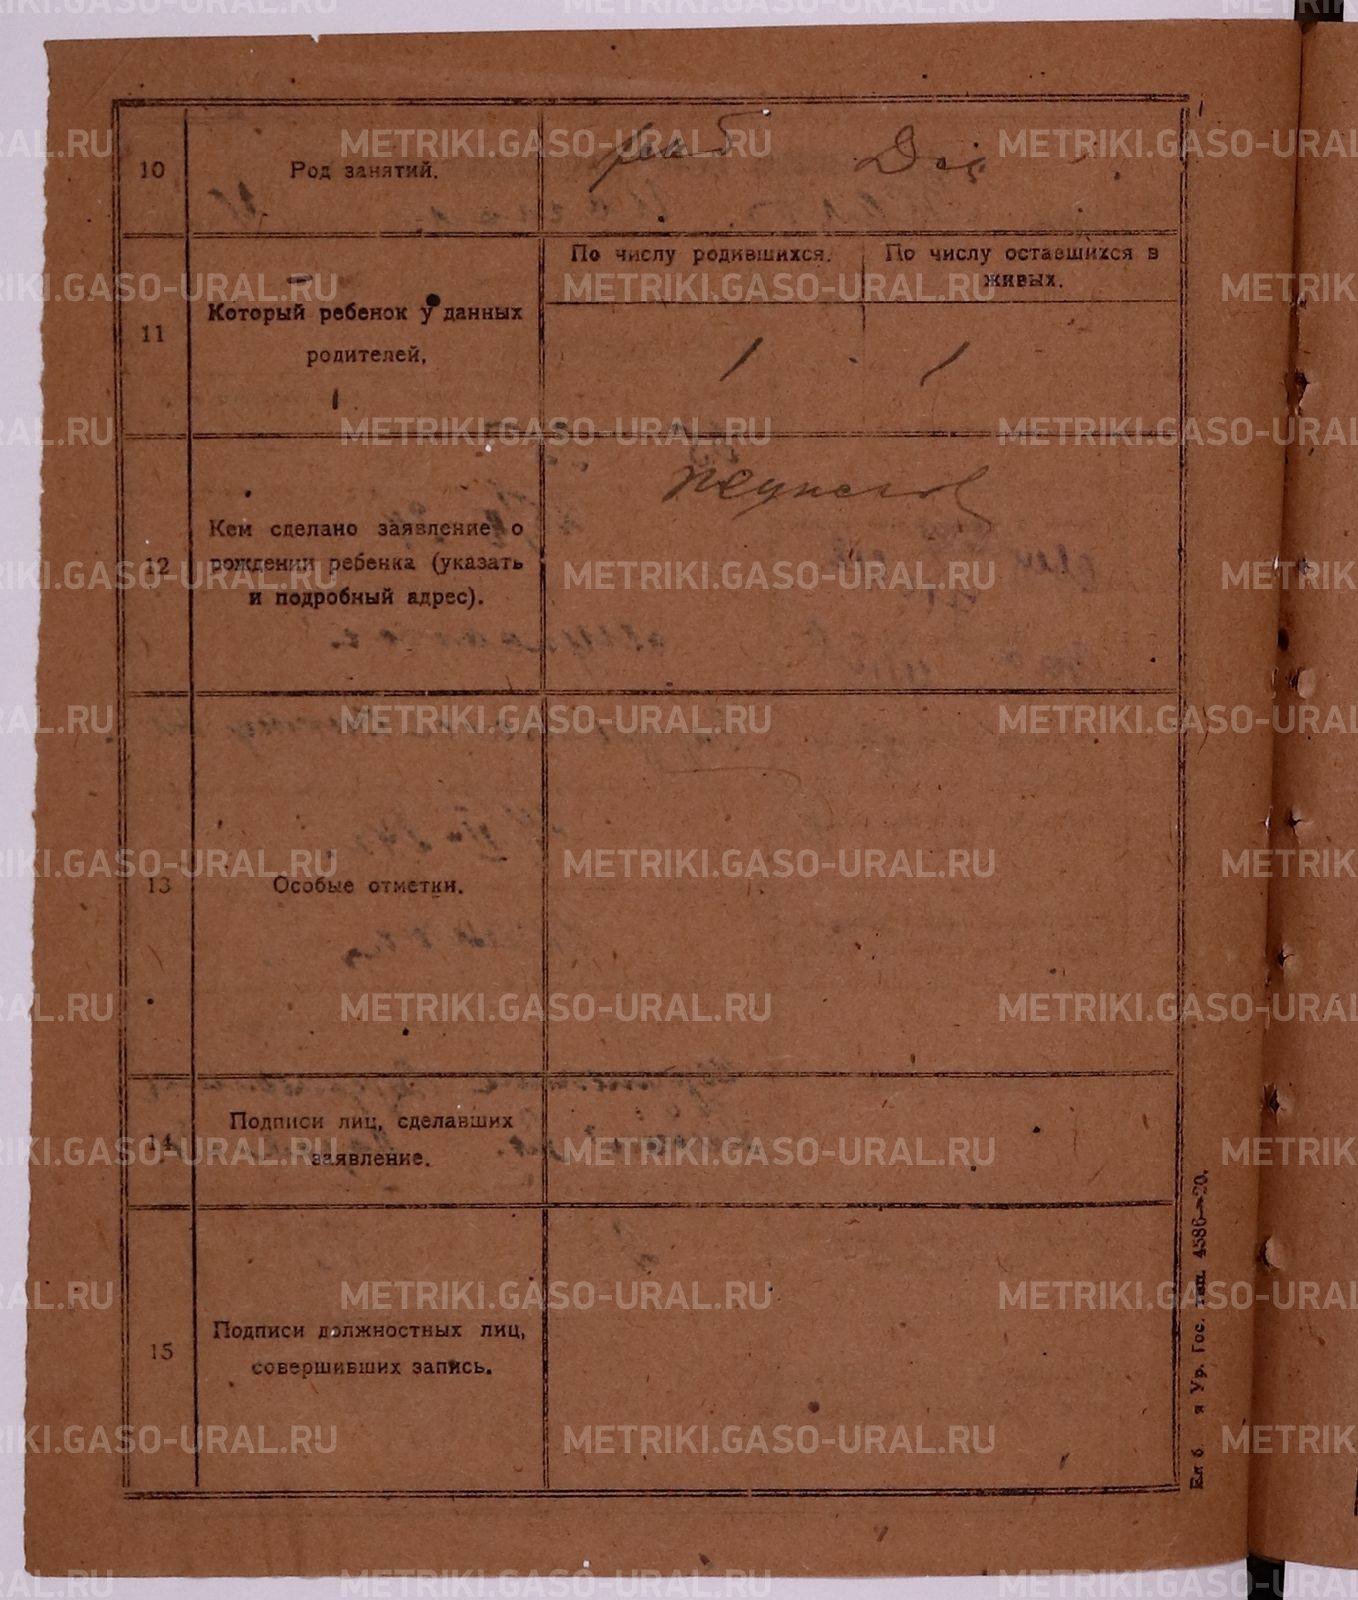 10
Род занятий.
11
Который ребенок у данных
родителей,
По числу родившихся.
По числу оставшихся в
живых.
1
1
12
Кем сделано заявление о
рождении ребенка (указать
и подробный адрес).
13
Особые отметки.
14
Подписи лиц, сделавших
заявление.
15
Подписи должностных лиц,
совершивших запись.
я Ур. Гос. тип. 4586—20.
METRIKI.GASO-URAL.RU